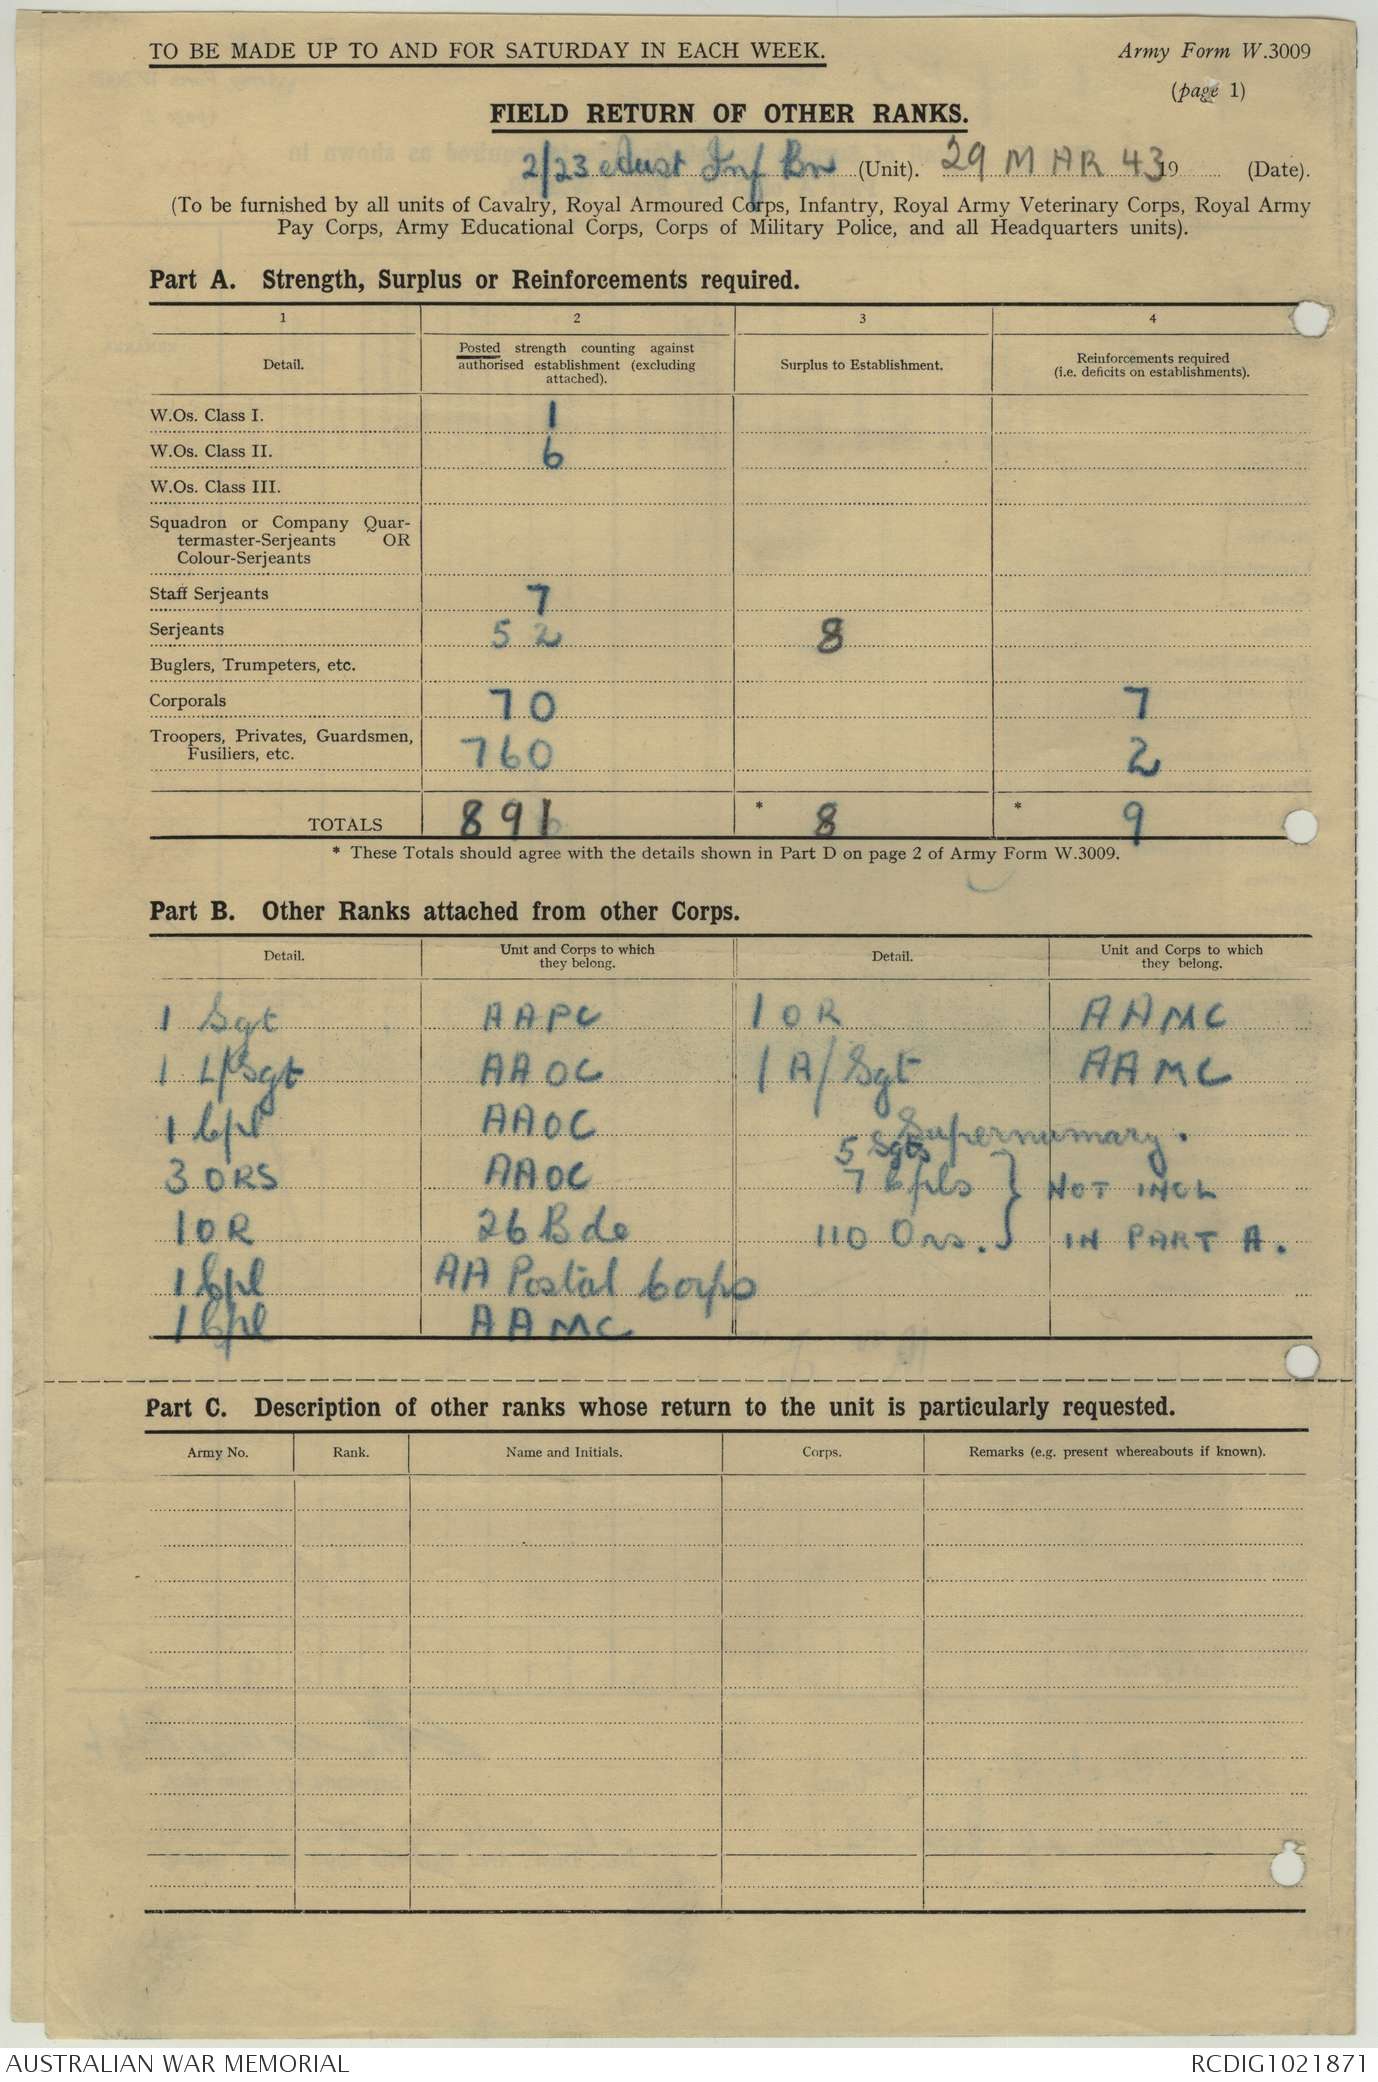 TO BE MADE UP TO AND FOR SATURDAY IN EACH WEEK. Army Form W.3009
(page 1)
FIELD RETURN OF OTHER RANKS.
2/23 Aust Inf Bn (Unit). 29 MAR 43 19 (Date).
(To be furnished by all units of Cavalry, Royal Armoured Corps, Infantry, Royal Army Veterinary Corps, Royal Army
Pay Corps, Army Educational Corps, Corps of Military Police, and all Headquarters units).
Part A. Strength, Surplus or Reinforcements required.
1 2 3 4
Detail. Posted strength counting against authorised establishment (excluding attached). Surplus to Establishment. Reinforcements required (i.e. deficits on establishments).
W.Os. Class I. 1
W.Os. Class II. 6
W.Os. Class III.
Squadron or Company Quar-
termaster-Serjeants OR
Colour-Serjeants
Staff Serjeants 7
Serjeants 52 8
Buglers, Trumpeters, etc.
Corporals 70 7
Troopers, Privates, Guardsmen,
Fusiliers, etc. 760 2
TOTALS 891 * 8 * 9
* These Totals should agree with the details shown in Part D on page 2 of Army Form W.3009.
Part B. Other Ranks attached from other Corps.
Detail. Unit and Corps to which they belong. Detail. Unit and Corps to which they belong.
1 Sgt AAPC 1 OR AAMC
1 L/Sgt AAOC 1 A/Sgt AAMC
1 Cpl AAOC Supernumary.
5 Sgts
3 ORS AAOC 7 Cpls } NOT INCL
1 OR 26 Bde 110 Ors. IN PART A.
1 Cpl AA Postal Corps
1 Cpl AAMC
Part C. Description of other ranks whose return to the unit is particularly requested.
Army No. Rank. Name and Initials. Corps. Remarks (e.g. present whereabouts if known).
AUSTRALIAN WAR MEMORIAL RCDIG1021871